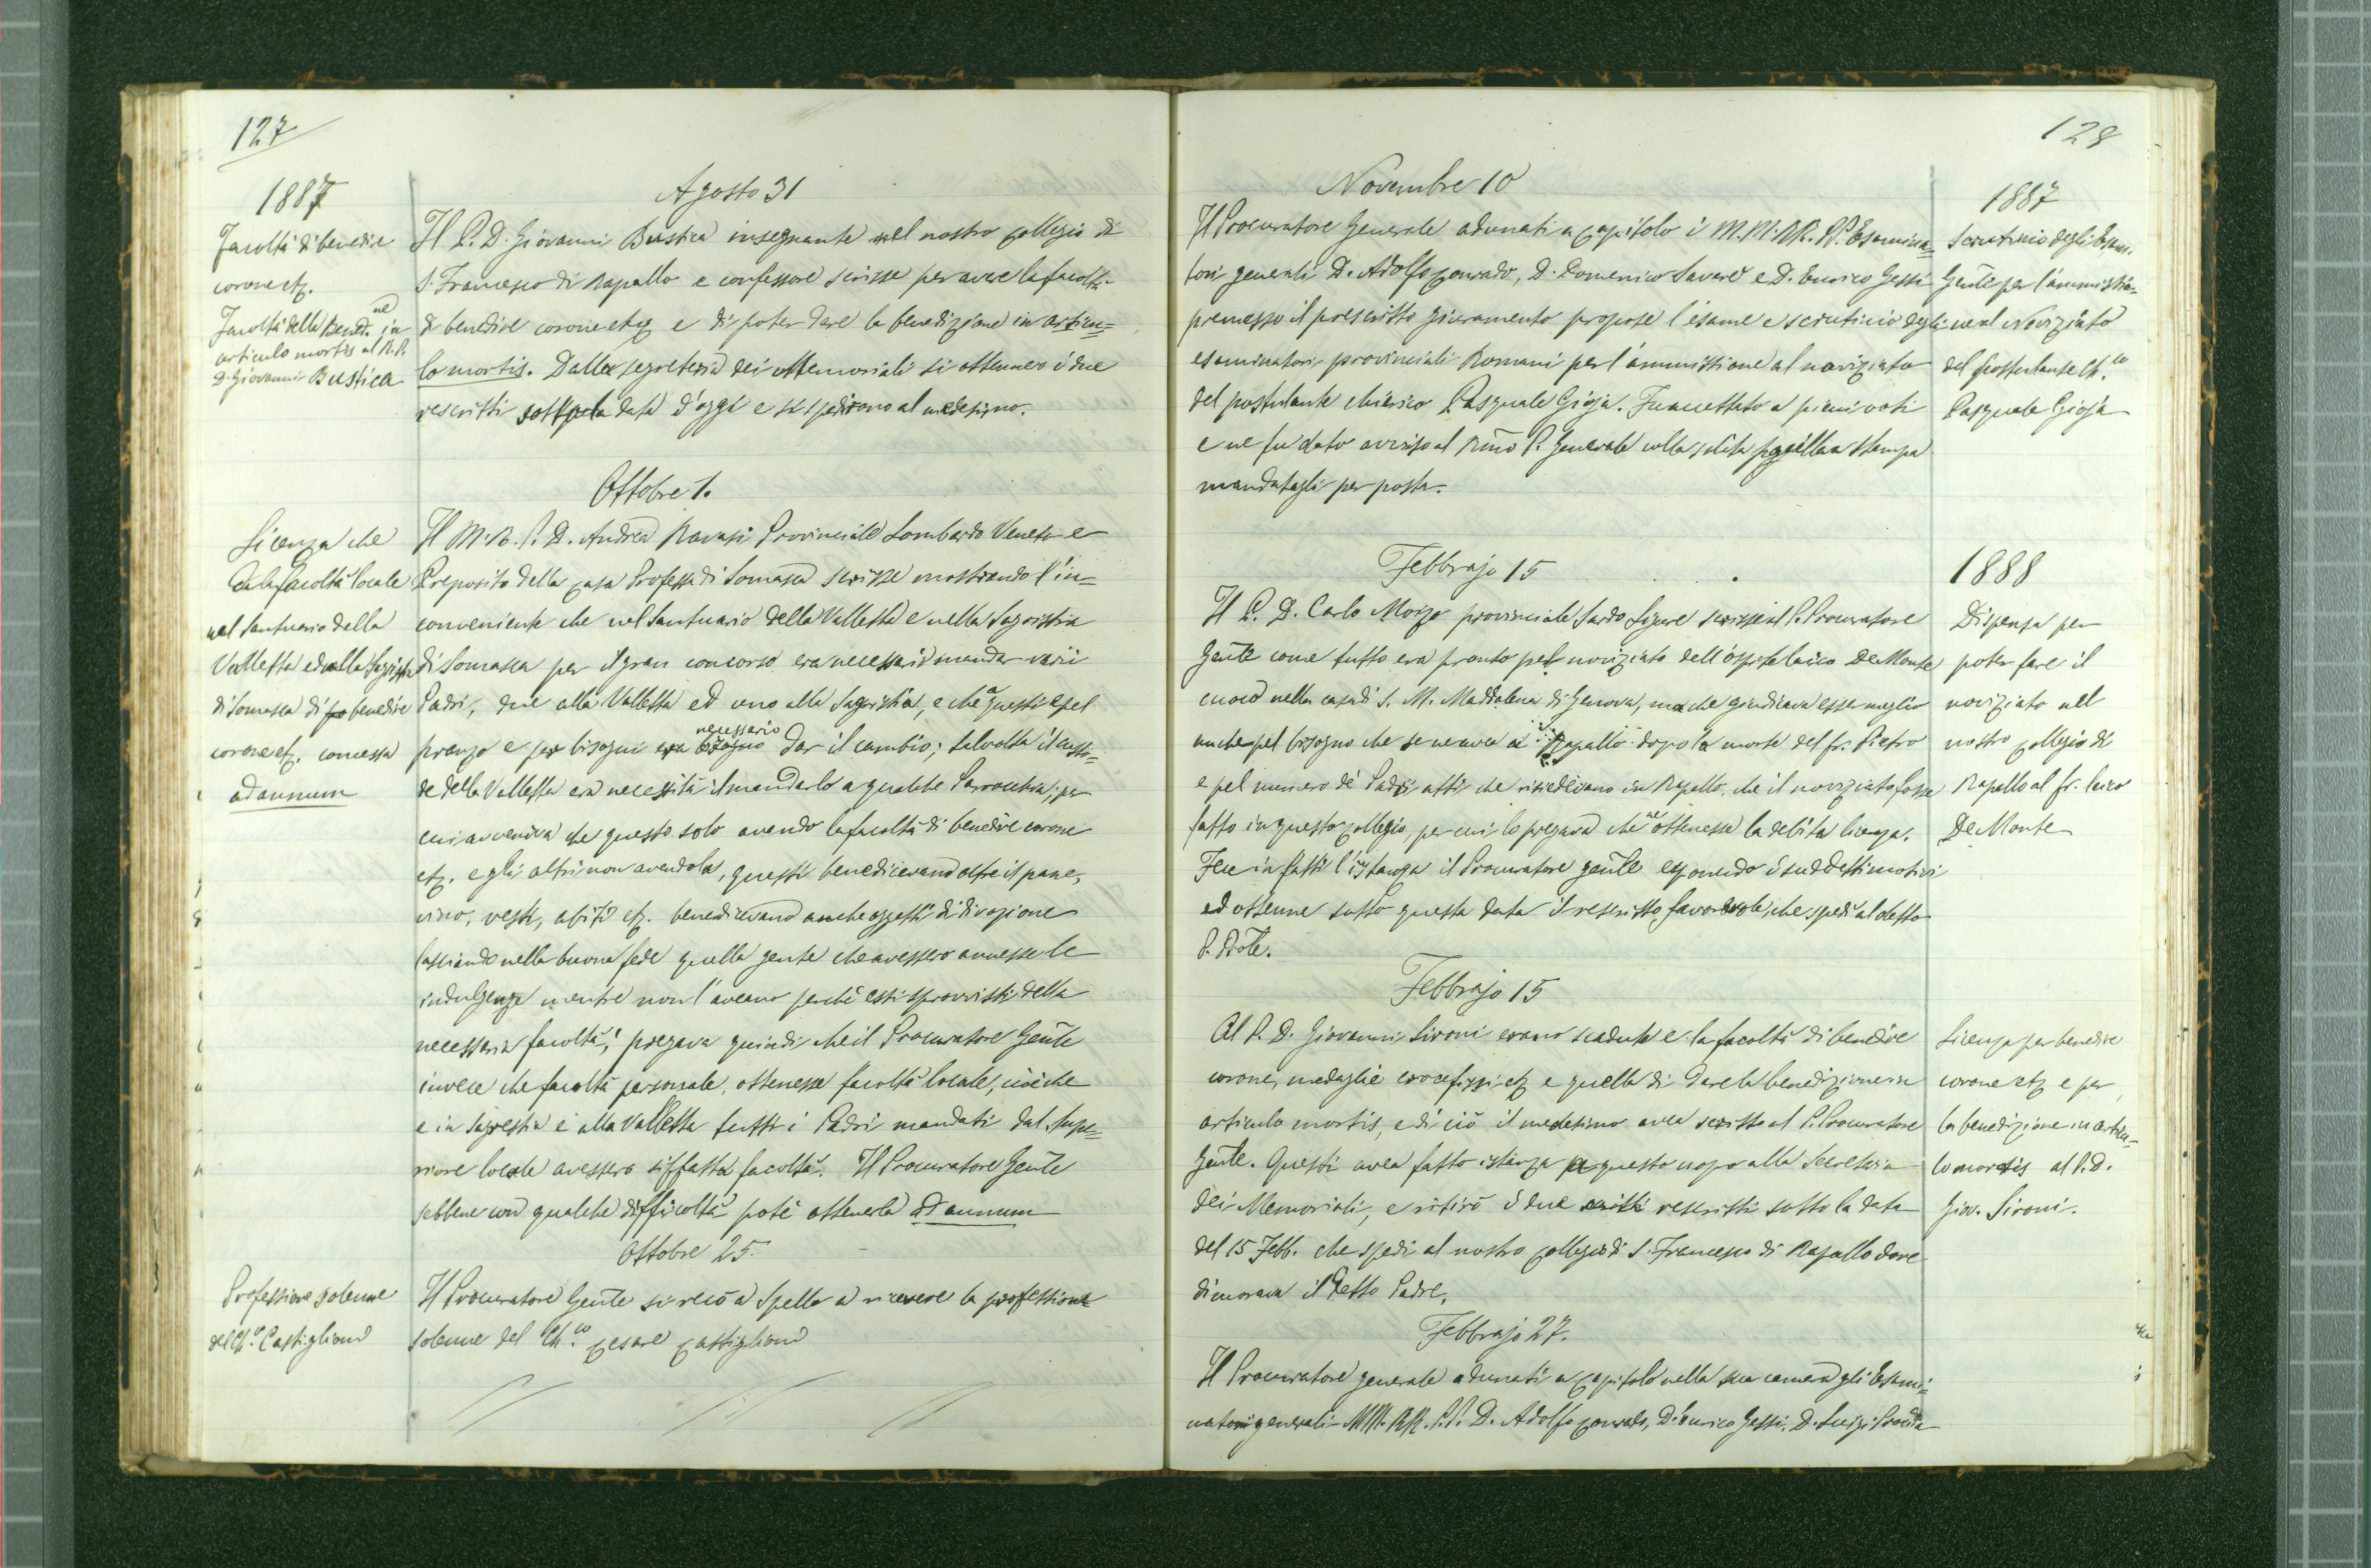 127
1887
Agosto 31
Facoltà di benedire
corone etz.
Facoltà della Bened.ne in
articulo mortis al R.P.
D. Giovanni Bustica
Il P. D. Giovanni Bustica insegnante nel nostro Collegio di
S. Francesco di Rapallo e confessore scrisse per avere la facoltà
di benedire corone etz e di poter dare la benedizione in articu=
lo mortis. Dalla segreteria dei Memoriali si ottennero i due
rescritti sotto la data d'oggi e si spedirono al medesimo.
Ottobre 1.
Licenza che
dà la facoltà locale
nel Santuario della
Valletta ed alla Sagristia
di Somasca di benedire
corone etz. concessa
ad annum
Il M. R. P. D. Andrea Ravasi Provinciale Lombardo Veneto e
Preposito della Casa Professa di Somasca scrisse mostrando l'in=
conveniente che nel Santuario della Valletta e nella Sagristia
di Somasca per il gran concorso era necessario mandar varii
Padri, due alla Valletta ed uno alla Sagristia, e che a questi e pel
pranzo e per bisogni era necessario dar il cambio; talvolta il custo=
de della Valletta era necessità il mandarlo a qualche Parrocchia; per
cui avveniva che questo solo avendo la facoltà di benedire corone
etz. e gli altri non avendola, questi benedicevano oltre il pane,
vino, vesti, abiti etz. benedicevano anche oggetti di divozione
lasciando nella buona fede quella gente che avessero annesse le
indulgenze mentre non l'aveano perchè essi sprovvisti della
necessaria facoltà; pregava quindi che il Procuratore Genle
invece che facoltà personale, ottenesse facoltà locale, cioè che
e in Sagrestia e alla Valletta tutti i Padri mandati dal Supe=
riore locale avessero siffatta facoltà. Il Procuratore Genle
sebbene con qualche difficoltà potè ottenerla ad annum
Ottobre 25.
Professione solenne
del Ch.co Castiglioni
Il Procuratore Genle si recò a Spello a ricevere la professione
solenne del Ch.co Cesare Castiglioni
128
Novembre 10
1887
Il Procuratore Generale adunati a Capitolo i M.M. RR. PP. Esamina=
tori generali D. Adolfo Conrado, D. Domenico Savarè e D. Enrico Gessi
premesso il prescritto giuramento propose l'esame e scrutinio degli
esaminatori provinciali Romani per l'ammissione al noviziato
del postulante chierico Pasquale Gioja. Fu accettato a pieni voti
e ne fu dato avviso al Rmo P. Generale colla solita pagella a stampa
mandatagli per posta.
Scrutinio degli Esam.
Genle per l'ammissio=
ne al Noviziato
del postulante Ch.co
Pasquale Gioja
Febbrajo 15
1888
Il P. D. Carlo Moizo provinciale Sardo Ligure scrisse al P. Procuratore
Genle come tutto era pronto pel noviziato dell'ospite laico De Monte
cuoco nella casa di S. M. Maddalena di Genova, ma che giudicava esser meglio
anche pel bisogno che se ne avea a Rapallo dopo la morte del fr. Pietro
e pel numero de' Padri atti che risiedevano in Rapallo, che il noviziato fosse
fatto in questo Collegio, per cui lo pregava che ne ottenesse la debita licenza.
Fece in fatti l'istanza il Procuratore genle esponendo i suddetti motivi
ed ottenne sotto questa data il rescritto favorevole, che spedì al detto
P. Prole.
Dispensa per
poter fare il
noviziato nel
nostro Collegio di
Rapallo al fr. laico
De Monte
Febbrajo 15
Al P. D. Giovanni Sironi erano scadute e la facoltà di benedire
corone, medaglie crocefissi etz e quella di dare la benedizione in
articulo mortis, e di ciò il medesimo avea scritto al P. Procuratore
Genle. Questi avea fatto istanza a questo uopo alla Secreteria
dei Memoriali, e ritirò i due rescritti sotto la data
del 15 Febb. che spedì al nostro Collegio di S. Francesco di Rapallo dove
dimorava il detto Padre.
Licenza per benedire
corone etz e per
la benedizione in articu=
lo mortis al P. D.
Giov. Sironi.
Febbrajo 27.
Il Procuratore generale adunati a Capitolo nella sua camera gli Esami=
natori generali MM. RR. P.P. D. Adolfo Conrado, D. Enrico Gessi, D. Luigi